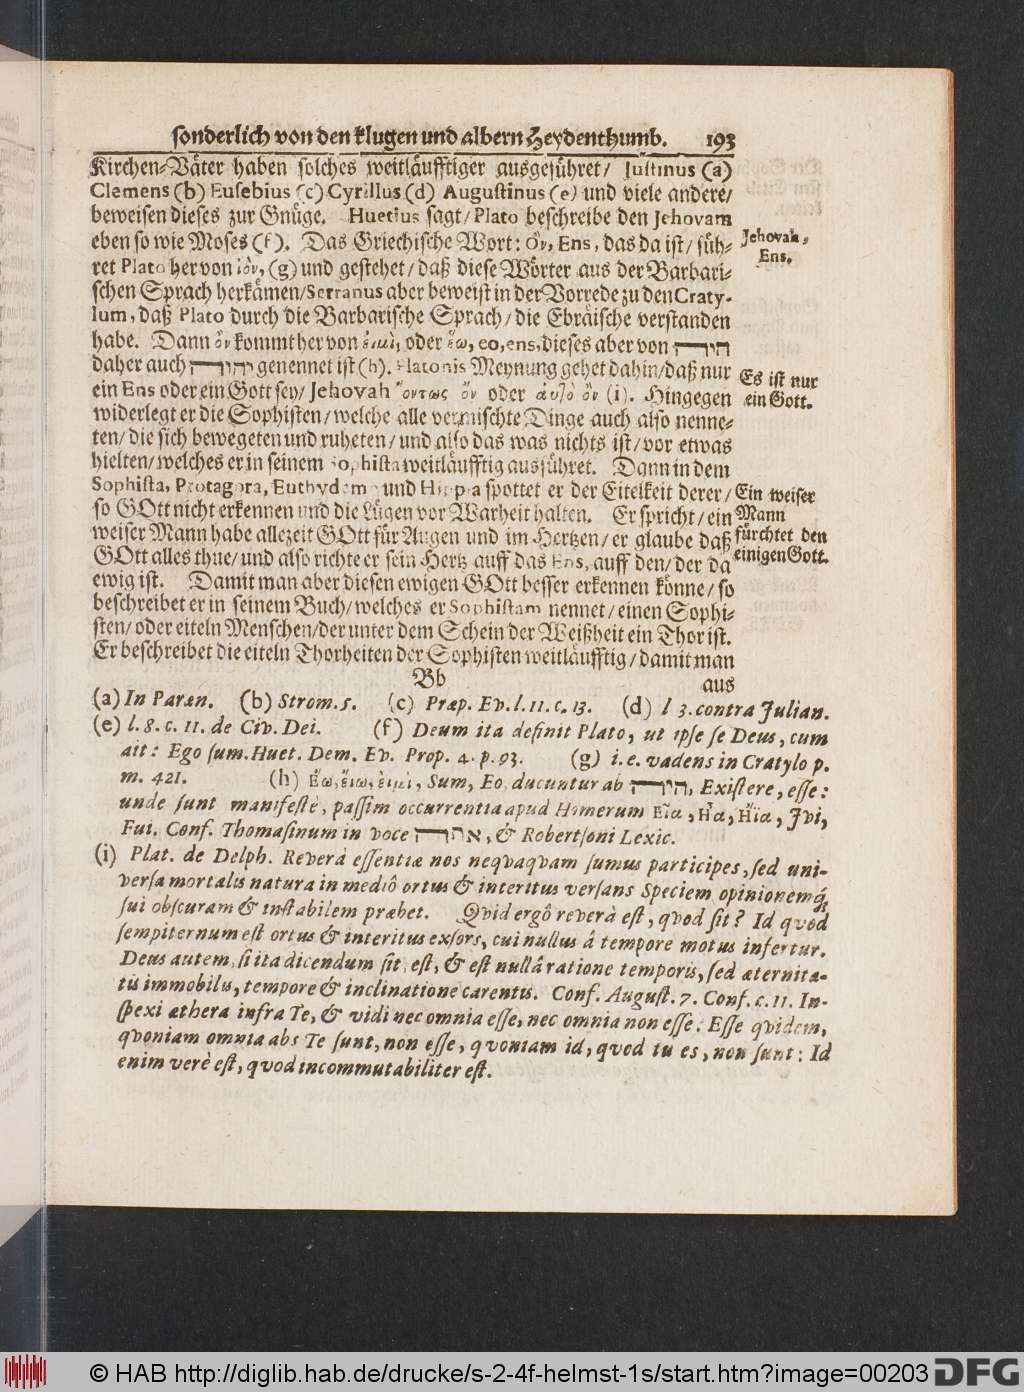 sonderlich von den klugen und albern Heydenthumb. 193
Kirchen-Väter haben solches weitläufftiger ausgeführet/ Justinus (a)
Clemens (b) Eusebius (c) Cyrillus (d) Augustinus (e) und viele andere/
beweisen dieses zur Gnüge. Huetius sagt/ Plato beschreibe den Jehovam
eben so wie Moses (f). Das Griechische Wort: Ὀν, Ens, das da ist/ füh-
ret Plato her von ἰὸν, (g) und gestehet/ daß diese Wörter aus der Barbari-
schen Sprach herkämen/ Serranus aber beweist in der Vorrede zu den Craty-
lum, daß Plato durch die Barbarische Sprach/ die Ebräische verstanden
habe. Dann ὂν kommt her von εἰμὶ, oder ἔω, eo, ens, dieses aber von היה
daher auch יהוה genennet ist (h). Platonis Meynung gehet dahin/ daß nur
ein Ens oder ein Gott sey/ Jehovah ὄντως ὂν oder ἀυτὸ ὂν (i). Hingegen
widerlegt er die Sophisten/ welche alle vermischte Dinge auch also nenne-
ten/ die sich bewegeten und ruheten/ und also das was nichts ist/ vor etwas
hielten/ welches er in seinem Sophista weitläufftig ausführet. Dann in dem
Sophista, Protagora, Euthydemo und Hippia spottet er der Eitelkeit derer/
so GOtt nicht erkennen und die Lügen vor Warheit halten. Er spricht/ ein
weiser Mann habe allezeit GOtt für Augen und im Hertzen/ er glaube daß
GOtt alles thue/ und also richte er sein Hertz auff das Ens, auff den/ der da
ewig ist. Damit man aber diesen ewigen GOtt besser erkennen könne/ so
beschreibet er in seinem Buch/ welches er Sophistam nennet/ einen Sophi-
sten/ oder eiteln Menschen/ der unter dem Schein der Weißheit ein Thor ist.
Er beschreibet die eiteln Thorheiten der Sophisten weitläufftig/ damit man
Bb aus
Jehovah,
Ens.
Es ist nur
ein Gott.
Ein weiser
Mann
fürchtet den
einigen Gott.
(a) In Paræn. (b) Strom. 5. (c) Præp. Ev. l. 11. c. 13. (d) l 3. contra Julian.
(e) l. 8. c. 11. de Civ. Dei. (f) Deum ita definit Plato, ut ipse se Deus, cum
ait: Ego sum. Huet. Dem. Ev. Prop. 4. p. 93. (g) i. e. vadens in Cratylo p.
m. 421. (h) Ἔω, ἔιω, ἐιμὶ, Sum, Eo, ducuntur ab היה, Existere, esse:
unde sunt manifestè, passim occurrentia apud Homerum Εἶα, Ἦα, Ἤϊα, Ivi,
Fui. Conf. Thomasinum in voce אהיה, & Robertsoni Lexic.
(i) Plat. de Delph. Reverà essentiæ nos neqvaqvam sumus participes, sed uni-
versa mortalis natura in mediô ortus & interitus versans Speciem opinionemq́;
sui obscuram & instabilem præbet. Qvid ergô reverà est, qvod sit? Id qvod
sempiternum est ortus & interitus exsors, cui nullus â tempore motus infertur.
Deus autem, si ita dicendum sit, est, & est nullâ ratione temporis, sed æternita-
tis immobilis, tempore & inclinatione carentis. Conf. August. 7. Conf. c. 11. In-
spexi æthera infra Te, & vidi nec omnia esse, nec omnia non esse: Esse qvidem,
qvoniam omnia abs Te sunt, non esse, qvoniam id, qvod tu es, non sunt: Id
enim verè est, qvod incommutabiliter est.
© HAB http://diglib.hab.de/drucke/s-2-4f-helmst-1s/start.htm?image=00203 DFG